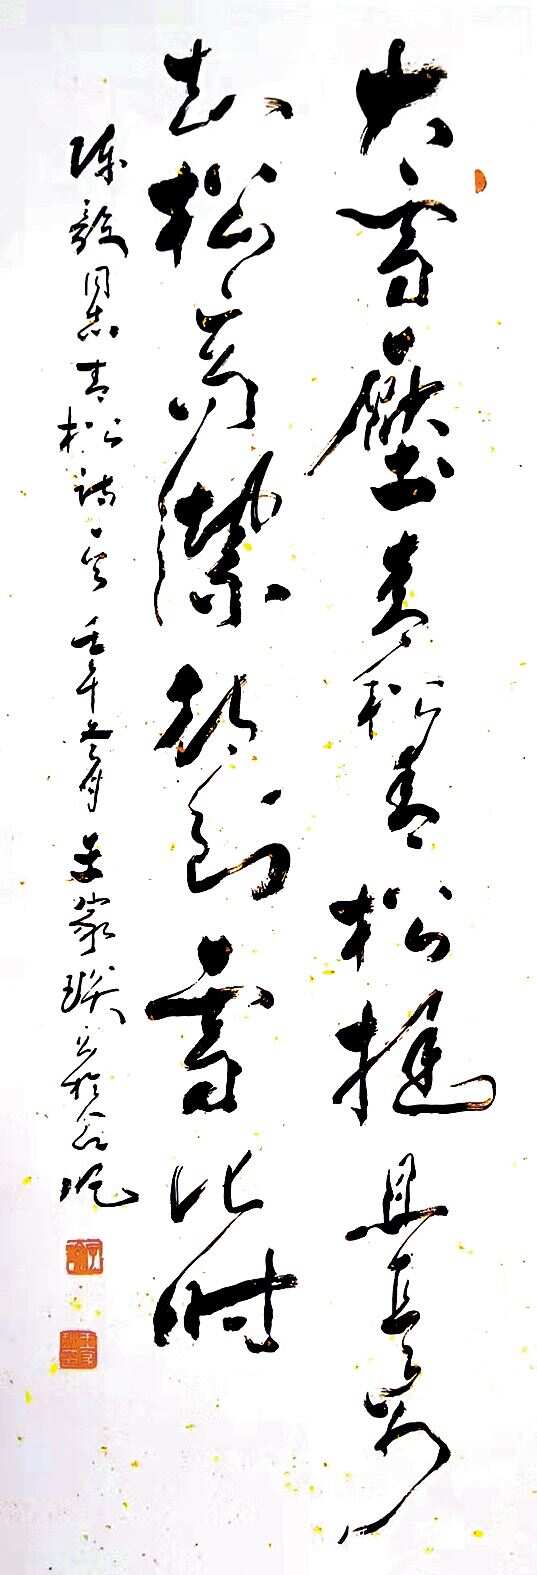 大雪壓青松青松挺且直要
知松高潔待到雪化时
陈毅同志青松诗一首 壬午五月 王家琰书於合肥